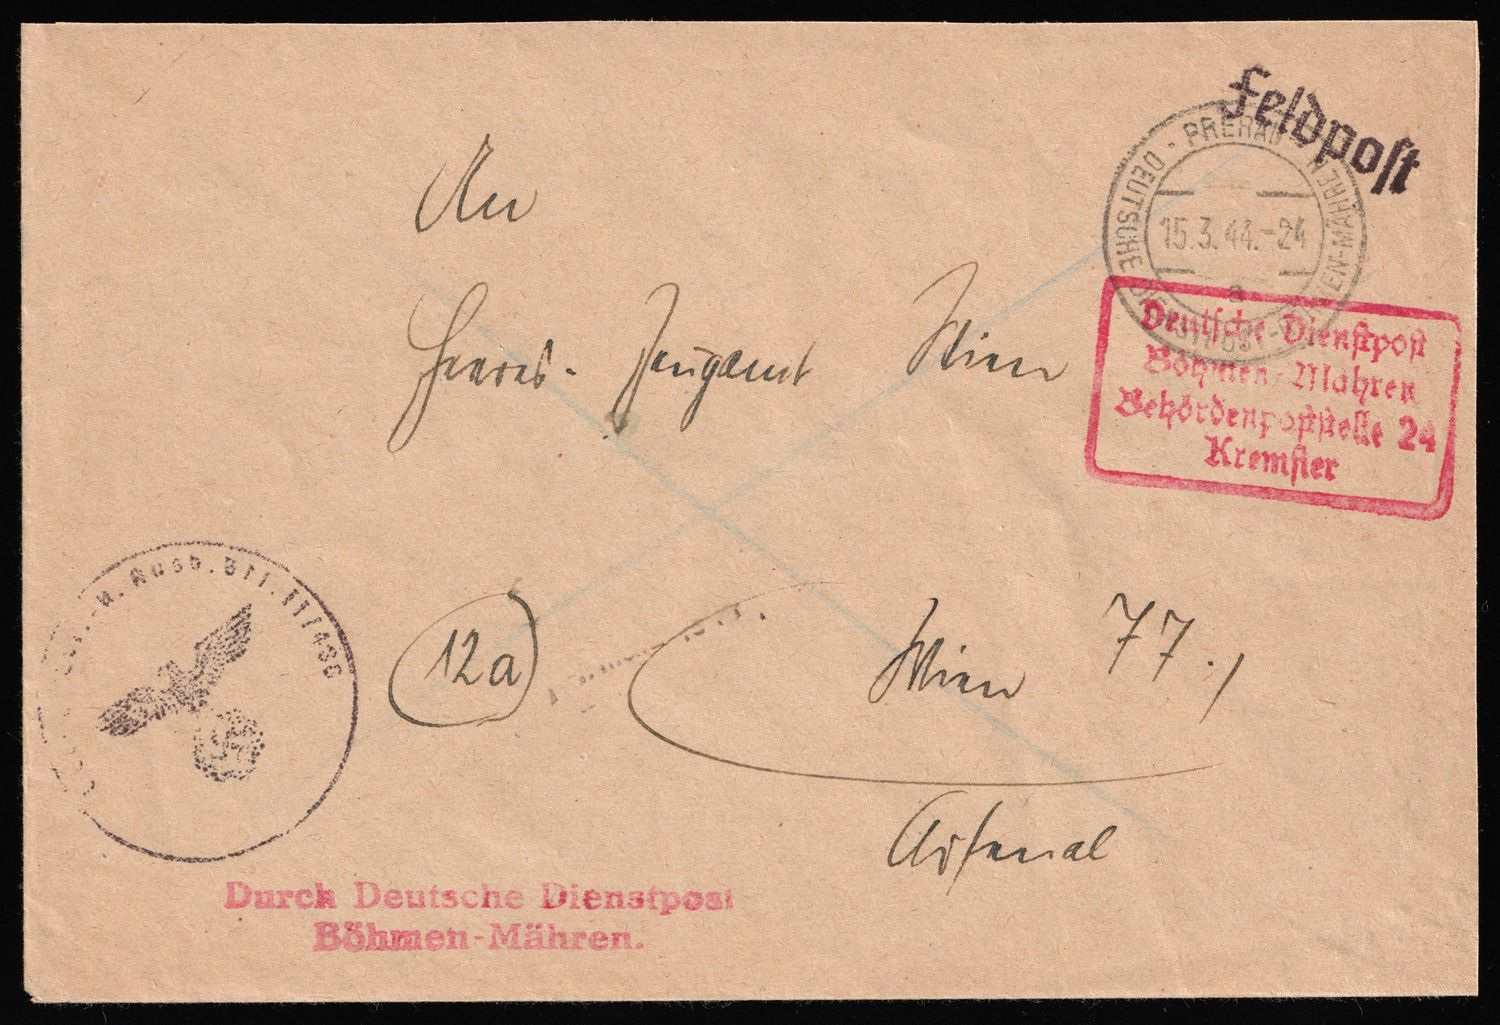 Feldpost
PRERAU
DEUTSCHE DIENSTPOST BÖHMEN-MÄHREN
15.3.44.-24
a
An
Heeres-Zeugamt Wien
Deutsche Dienstpost
Böhmen-Mähren
Behördenpoststelle 24
Kremsier
u. Ausb. Btl. II/486
12a
Wien 77.,
Arsenal
Durch Deutsche Dienstpost
Böhmen-Mähren.